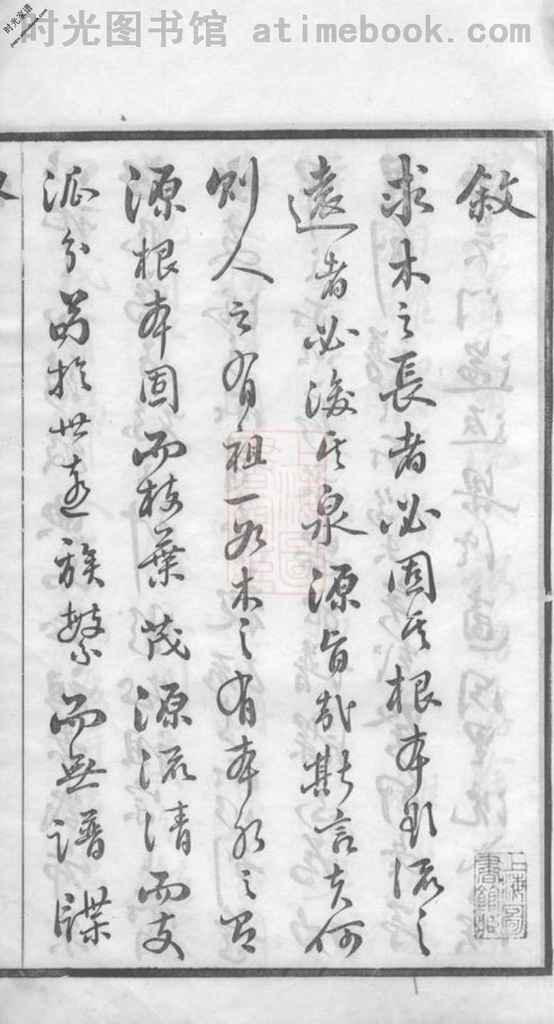 时光图书馆 atimebook.com
时光家谱
敘
求木之長者必固其根本欲流之
遠者必浚其泉源旨哉斯言夫何
則人之有祖一如木之有本水之有
源根本固而枝葉茂源流清而支
派分苐於世遠族繁而無譜牒
上海圖書館藏